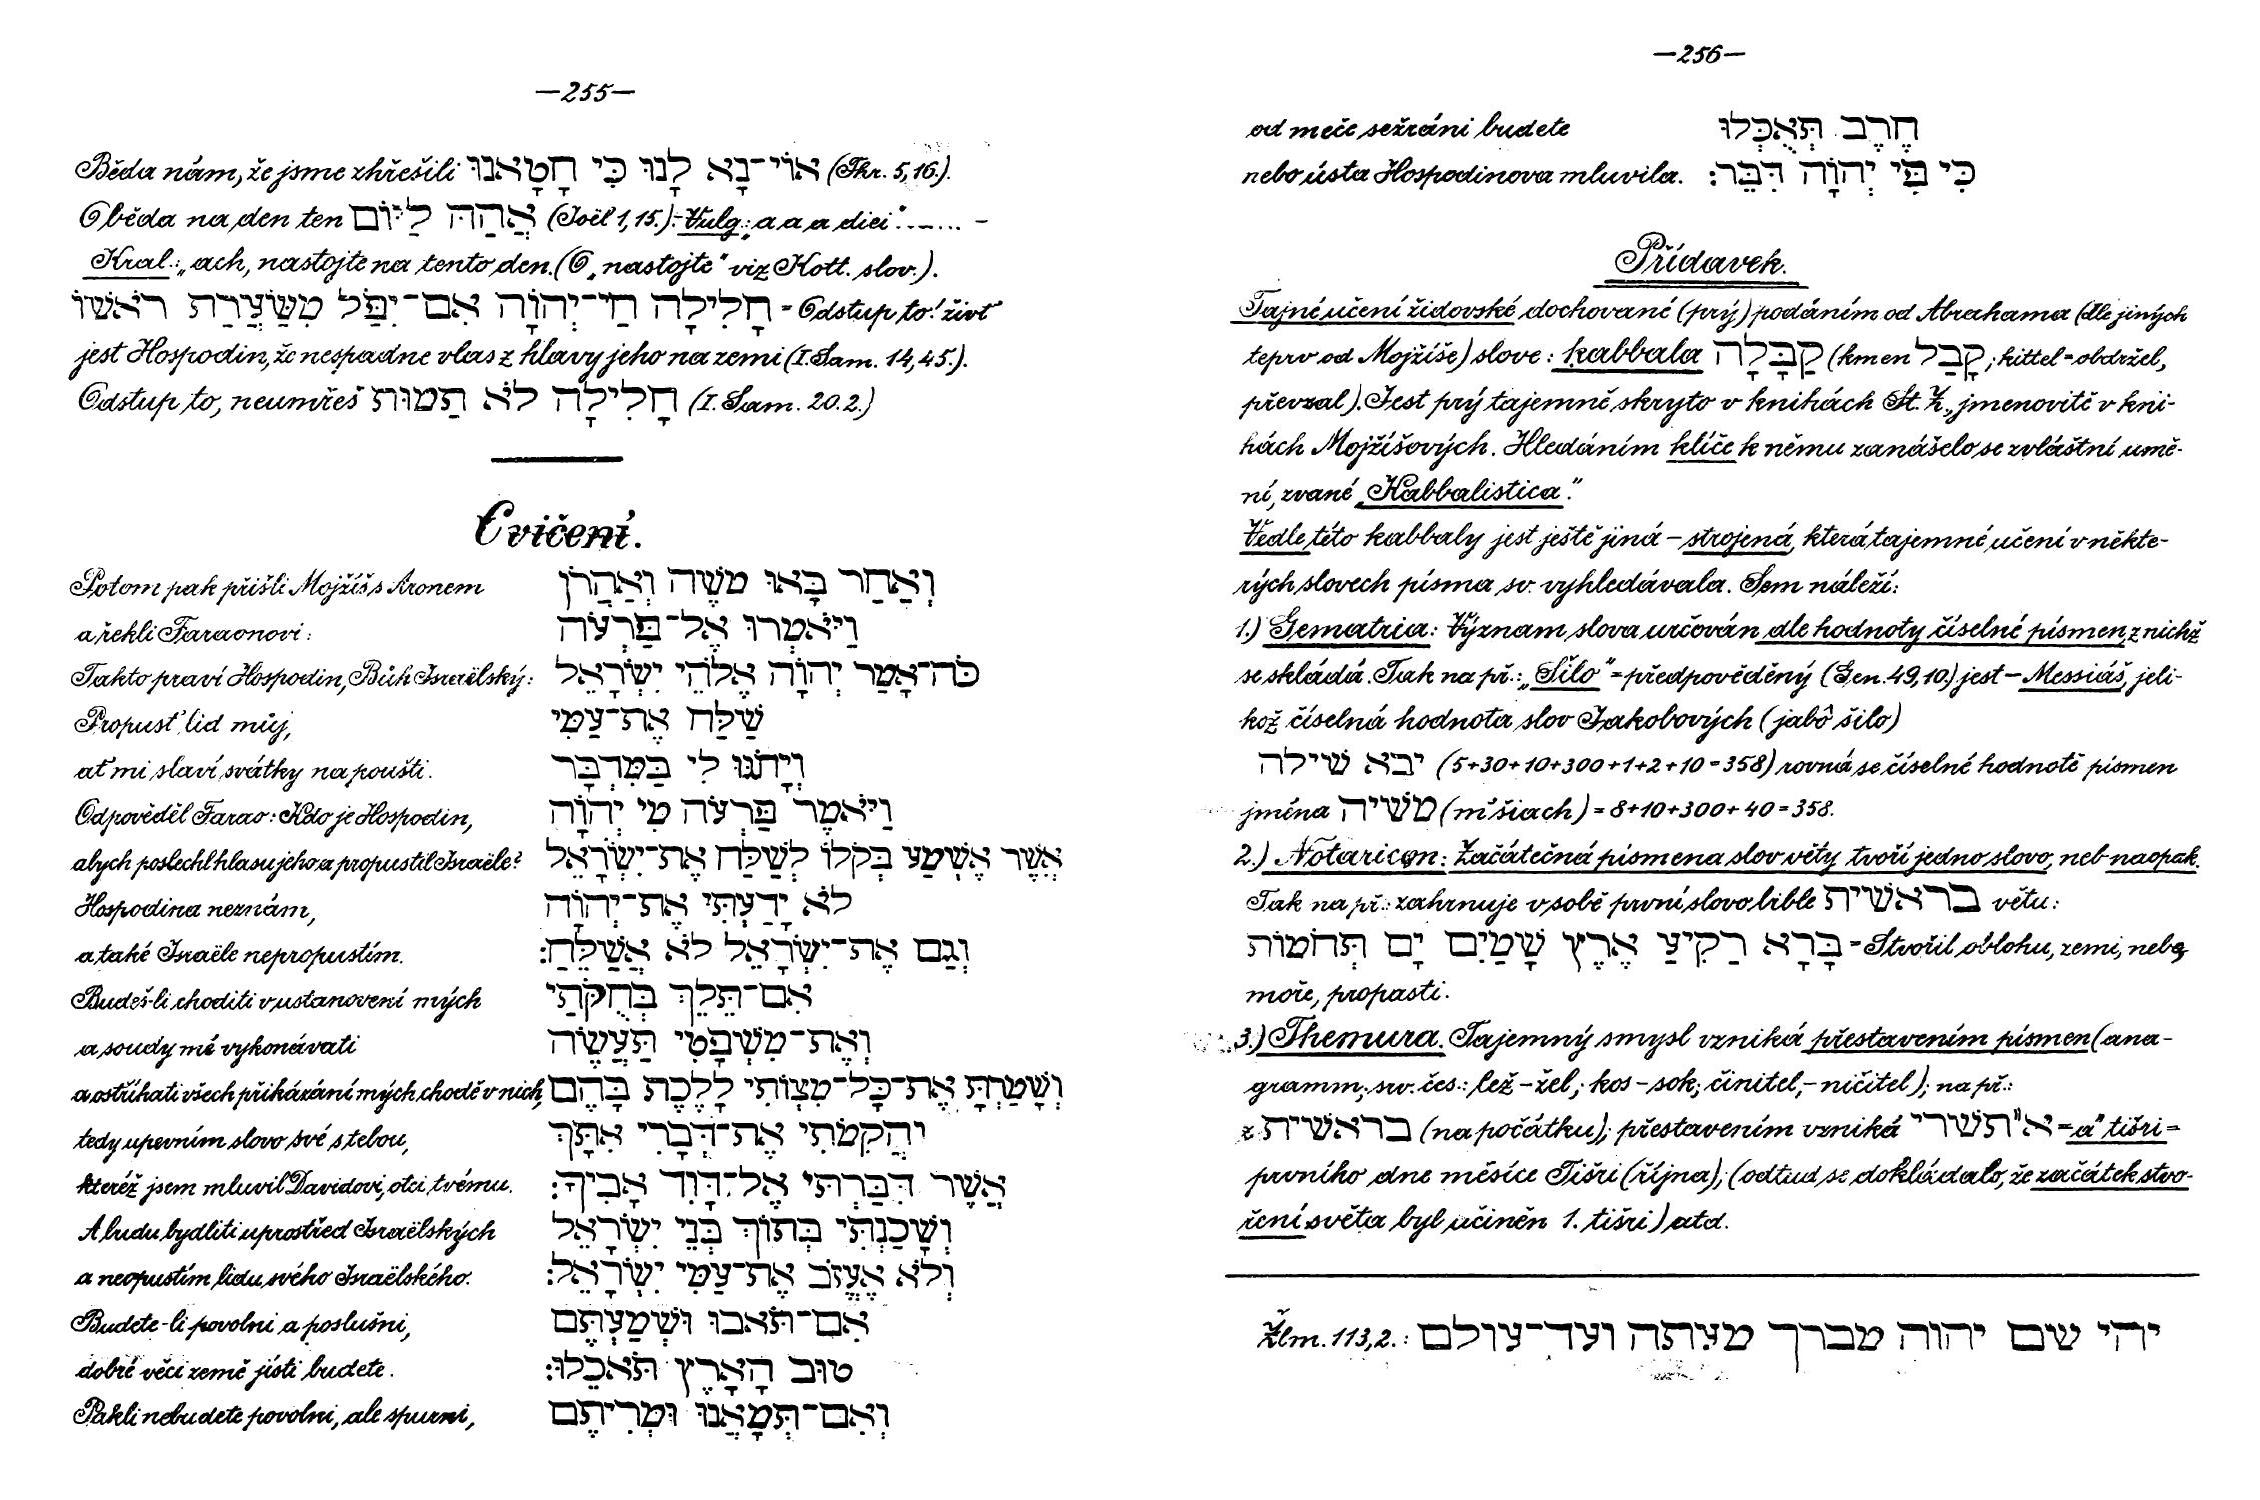 —255—
Běda nám, že jsme zhřešili אוֹי־נָא לָנוּ כִּי חָטָאנוּ (Thr. 5,16.).
Oběda na den ten אֲהַהּ לַיּוֹם (Joël 1,15.).-Vulg.: „a a a diei"......
Kral.: „ach, nastojte na tento den. (O „nastojte" viz Kott. slov.).
חָלִילָה חַי־יְהוָֹה אִם־יִפֹּל מִשַּׂעֲרַת רֹאשׁוֹ = Odstup to! živť
jest Hospodin, že nespadne vlas z hlavy jeho na zemi (I. Sam. 14,45.).
Odstup to, neumřeš חָלִילָה לֹא תַמוּת (I. Sam. 20.2.)
Cvičení.
Potom pak přišli Mojžíš s Aronem וְאַחַר בָּאוּ משֶׁה וְאַהֲרֹן
a řekli Faraonovi: וַיֹּאמְרוּ אֶל־פַּרְעֹה
Takto praví Hospodin, Bůh Israëlský: כֹּה־אָמַר יְהוָֹה אֱלֹהֵי יִשְׂרָאֵל
Propusť lid můj, שַׁלַּח אֶת־עַמִּי
ať mi slaví svátky na poušti. וְיָחֹגּוּ לִי בַּמִּדְבָּר
Odpověděl Farao: Kdo je Hospodin, וַיֹּאמֶר פַּרְעֹה מִי יְהוָֹה
abych poslechl hlasu jeho a propustil Israële? אֲשֶׁר אֶשְׁמַע בְּקֹלוֹ לְשַׁלַּח אֶת־יִשְׂרָאֵל
Hospodina neznám, לֹא יָדַעְתִּי אֶת־יְהוָֹה
a také Israële nepropustím. וְגַם אֶת־יִשְׂרָאֵל לֹא אֲשַׁלֵּחַ׃
Budeš-li choditi v ustanovení mých אִם־תֵּלֵךְ בְּחֻקֹּתַי
a soudy mé vykonávati וְאֶת־מִשְׁפָּטַי תַּעֲשֶׂה
a ostříhati všech přikázání mých chodě v nich, וְשָׁמַרְתָּ אֶת־כָּל־מִצְוֹתַי לָלֶכֶת בָּהֶם
tedy upevním slovo své s tebou, וַהֲקִמֹתִי אֶת־דְּבָרִי אִתָּךְ
kteréž jsem mluvil Davidovi, otci tvému. אֲשֶׁר דִּבַּרְתִּי אֶל־דָּוִד אָבִיךָ׃
A budu bydliti uprostřed Israëlských וְשָׁכַנְתִּי בְּתוֹךְ בְּנֵי יִשְׂרָאֵל
a neopustím lidu svého Israëlského. וְלֹא אֶעֱזֹב אֶת־עַמִּי יִשְׂרָאֵל׃
Budete-li povolni a poslušni, אִם־תֹּאבוּ וּשְׁמַעְתֶּם
dobré věci země jísti budete. טוּב הָאָרֶץ תֹּאכֵלוּ׃
Pakli nebudete povolni, ale spurni, וְאִם־תְּמָאֲנוּ וּמְרִיתֶם
—256—
od meče sežráni budete חֶרֶב תְּאֻכְּלוּ
nebo ústa Hospodinova mluvila. כִּי פִּי יְהוָֹה דִּבֵּר׃
Přídavek.
Tajné učení židovské dochované (prý) podáním od Abrahama (dle jiných
teprv od Mojžíše) slove: kabbala קַבָּלָה (kmen קָבַל; kittel = obdržel,
převzal). Jest prý tajemně skryto v knihách St. Z., jmenovitě v kni-
hách Mojžíšových. Hledáním klíče k němu zanášelo se zvláštní umě-
ní, zvané „Kabbalistica."
Vedle této kabbaly jest ještě jiná – strojená, která tajemné učení v někte-
rých slovech písma sv. vyhledávala. Sem náleží:
1.) Gematria: Význam slova určován dle hodnoty číselné písmen, z nichž
se skládá. Tak na př.: „Šilo" = předpověděný (Gen. 49,10.) jest – Messiáš, jeli-
kož číselná hodnota slov Jakobových (jabô šilo)
יבא שילה (5+30+10+300+1+2+10=358) rovná se číselné hodnotě písmen
jména משיח (m'šiach) = 8+10+300+40=358.
2.) Notaricon: Začátečná písmena slov věty tvoří jedno slovo, neb naopak.
Tak na př.: zahrnuje v sobě první slovo bible בראשית větu:
בָּרָא רַקִיעַ אֶרֶץ שָׁמַיִם יָם תְּהֹמוֹת = Stvořil oblohu, zemi, nebe,
moře, propasti.
3.) Themura. Tajemný smysl vzniká přestavením písmen (ana-
gramm; sw. čes.: lež – žel; kos – sok; činitel, – ničitel); na př.:
z בראשית (na počátku); přestavením vzniká א"תשרי = „a" tišri =
prvního dne měsíce Tišri (října); (odtud se dokládalo, že začátek stvo-
ření světa byl učiněn 1. tišri) atd.
Žlm. 113,2.: יהי שם יהוה מברך מעתה ועד־עולם